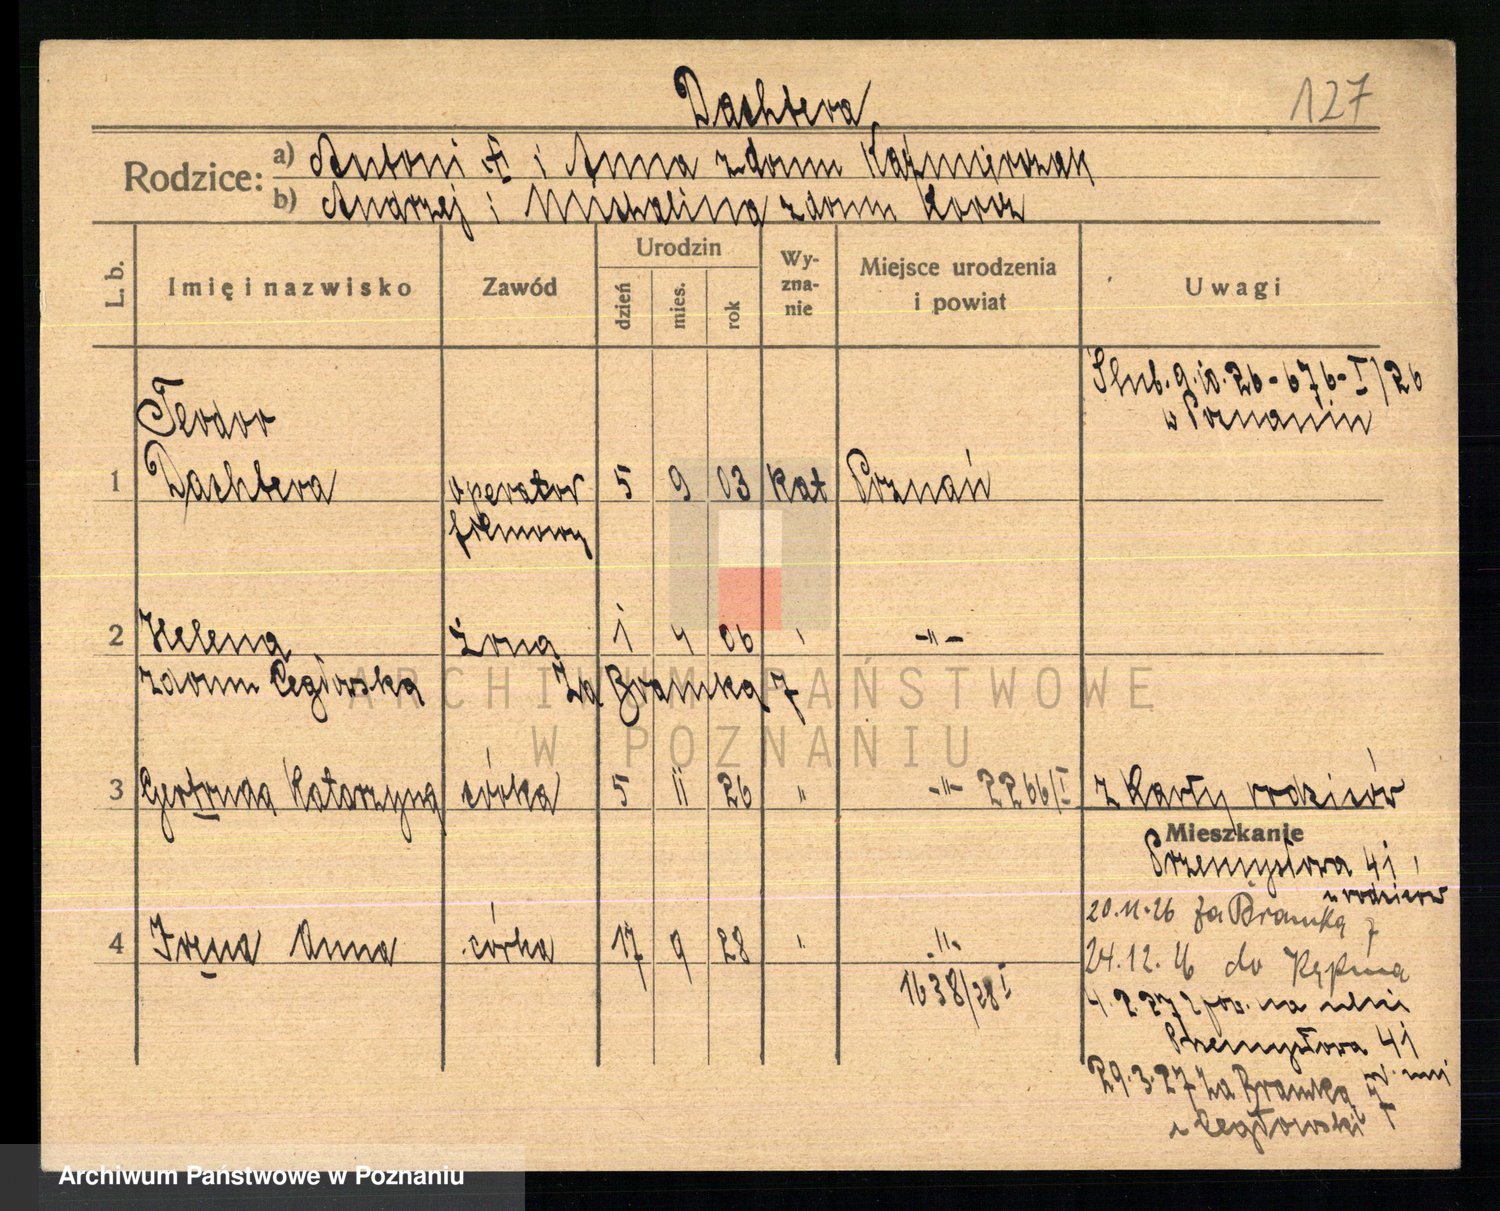 Dachtera
127
Rodzice:
a) Antoni i Anna z domu Kaźmierczak
b) Andrzej i Michalina z domu
L. b.
Imię i nazwisko
Zawód
Urodzin
dzień
mies.
rok
Wy-
zna-
nie
Miejsce urodzenia
i powiat
Uwagi
Ślub. 9.10.26 - 676 - I/26
w Poznaniu
Teodor
1 Dachtera operator 5 9 03 kat Poznań
filmowy
2 Helena żona 1 4 06 -"-
z domu Cegłowska Za Bramką 7
3 Gertruda Katarzyna córka 5 11 26 " -"- 2266/I z karty rodziców
Mieszkanie
Przemysłowa 41
u rodziców
20.11.26 Za Bramką 7
4 Irena Anna córka 17 9 28 -"-
24.12.26 do Kępna
1638/28 I
4.2.27 z pow. na
Przemysłowa 41
29.3.27 Za Bramką 7
u Cegłowski
ARCHIWUM PAŃSTWOWE
W POZNANIU
Archiwum Państwowe w Poznaniu